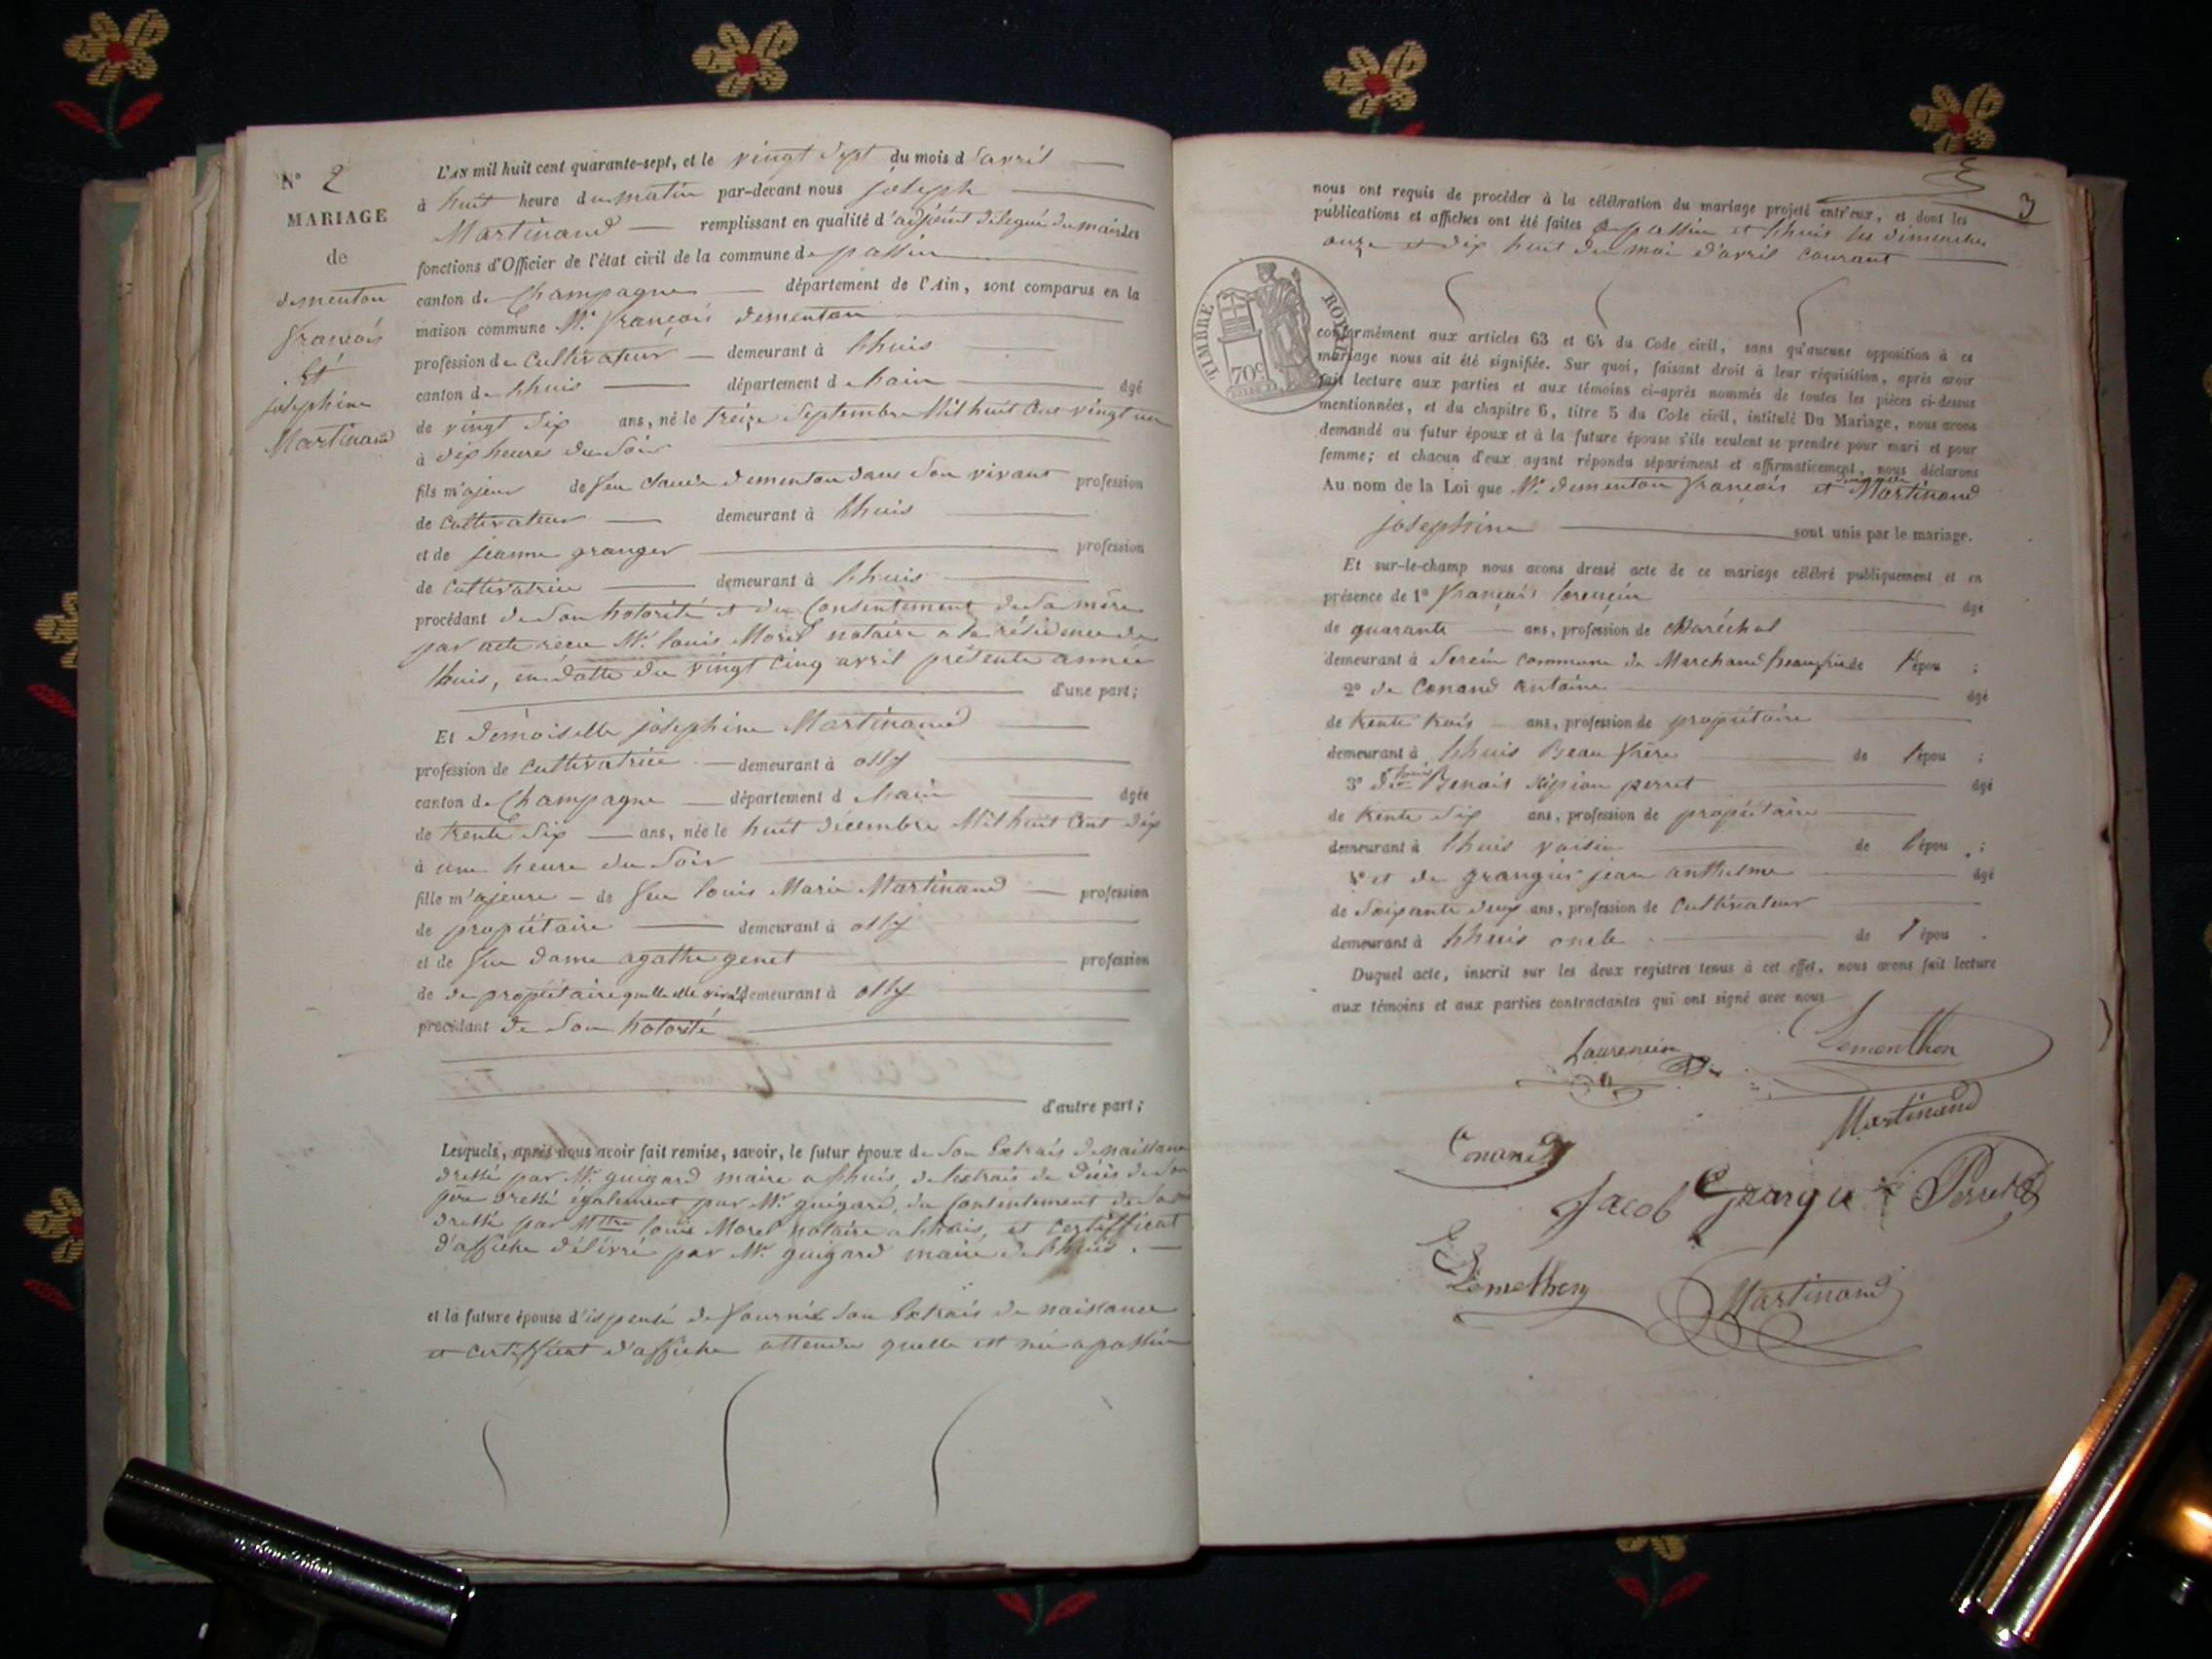 N° 2
MARIAGE
de
dementon
françois
Et
josephine
Martinand
L'AN mil huit cent quarante-sept, et le vingt Sept du mois d'avril
à huit heure du matin par-devant nous joseph
Martinand remplissant en qualité d'adjoint délégué du maire les
fonctions d'Officier de l'état civil de la commune de passin
canton de Champagne département de l'Ain, sont comparus en la
maison commune Mr. françois dementon
profession de Cultivateur demeurant à lhuis
canton de lhuis département de lain âgé
de vingt Six ans, né le treize Septembre Mil huit Cent vingt un
à dix heures du Soir
fils majeur de feu claude dementon dans Son vivant profession
de Cultivateur demeurant à lhuis
et de jeanne granger profession
de Cultivatrice demeurant à lhuis
procédant de Son hotorité et du Consentement de Sa mère
par acte reçu Mr. louis Morel notaire a la résidence de
lhuis, en datte du vingt Cinq avril présente année
d'une part;
Et demoiselle josephine Martinand
profession de Cultivatrice demeurant à ossy
canton de Champagne département d lain âgée
de trente Six ans, née le huit décembre Mil huit Cent dix
à une heure du Soir
fille majeure de feu louis Marie Martinand profession
de propiétaire demeurant à ossy
et de feu dame agathe genet profession
de de propiétaire quelle elle vivait demeurant à ossy
procédant de Son hotorité
d'autre part;
Lesquels, après nous avoir fait remise, savoir, le futur époux de Son Extrais de naissance
dressé par Mr. guigard maire a lhuis, de lextrais de déces de Son
père dressé également par Mr. guigard, du Consentement de Sa
dressé par Mttre louis Morel notaire a lhuis, et Certifficat
d'affiche délivré par Mr. guigard maire de lhuis.
et la future épouse d'ispensé de fournir Son Extrais de naissance
et Certifficat d'affiche attendu quelle est née a passin
3
nous ont requis de procéder à la célébration du mariage projeté entr'eux, et dont les
publications et affiches ont été faites a passin et lhuis les dimanches
onze et dix huit du moi d'avril Courant
TIMBRE ROYAL
70c
conformément aux articles 63 et 64 du Code civil, sans qu'aucune opposition à ce
mariage nous ait été signifiée. Sur quoi, faisant droit à leur réquisition, après avoir
fait lecture aux parties et aux témoins ci-après nommés de toutes les pièces ci-dessus
mentionnées, et du chapitre 6, titre 5 du Code civil, intitulé Du Mariage, nous avons
demandé au futur époux et à la future épouse s'ils veulent se prendre pour mari et pour
femme; et chacun d'eux ayant répondu séparément et affirmativement, nous déclarons
Au nom de la Loi que Mr. dementon françois et Martinand
josephine sont unis par le mariage.
Et sur-le-champ nous avons dressé acte de ce mariage célébré publiquement et en
présence de 1° françois lorençin âgé
de quarante ans, profession de Maréchal
demeurant à Serein Commune de Marchand beaufrère de l'épou ;
2° de Conand antoine âgé
de trente trois ans, profession de propiétaire
demeurant à lhuis Beau frère de l'épou ;
3° de Benoit Sipion perret âgé
de trente Six ans, profession de propiétaire
demeurant à lhuis voisin de l'épou ;
4° et de grangier jean anthelme âgé
de Soixante deux ans, profession de Cultivateur
demeurant à lhuis oncle de l'épou .
Duquel acte, inscrit sur les deux registres tenus à cet effet, nous avons fait lecture
aux témoins et aux parties contractantes qui ont signé avec nous
Laurencin
Dementhon
Martinand
Conand
Jacob
Perret
Dementhon
Martinand